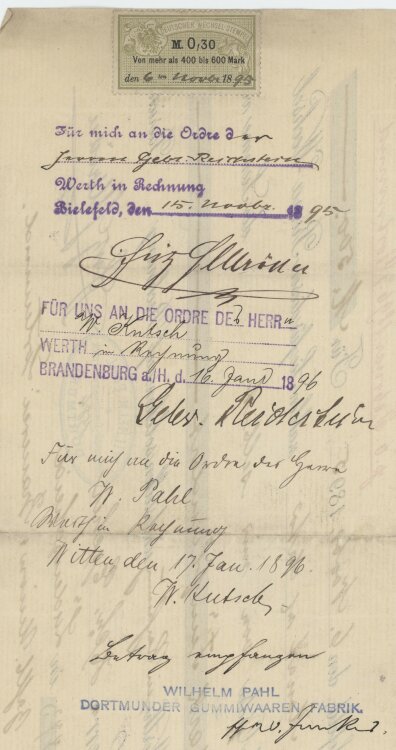 DEUTSCHER WECHSEL-STEMPEL
M. 0,30
Von mehr als 400 bis 600 Mark
den 6ten Novbr 1895
Für mich an die Ordre der
Herren Gebr. Reichstein
Werth in Rechnung
Bielefeld, den 15. Novbr. 1895
Fritz
FÜR UNS AN DIE ORDRE DES HERRn
W. Kutsch
WERTH in Rechnung
BRANDENBURG a./H. d. 16 Jan 1896
Gebr. Reichstein
Für mich an die Ordre des Herrn
W. Pahl
Werth in Rechnung
Witten den 17. Jan. 1896.
W. Kutsch
Betrag empfangen
WILHELM PAHL
DORTMUNDER GUMMIWAAREN FABRIK.